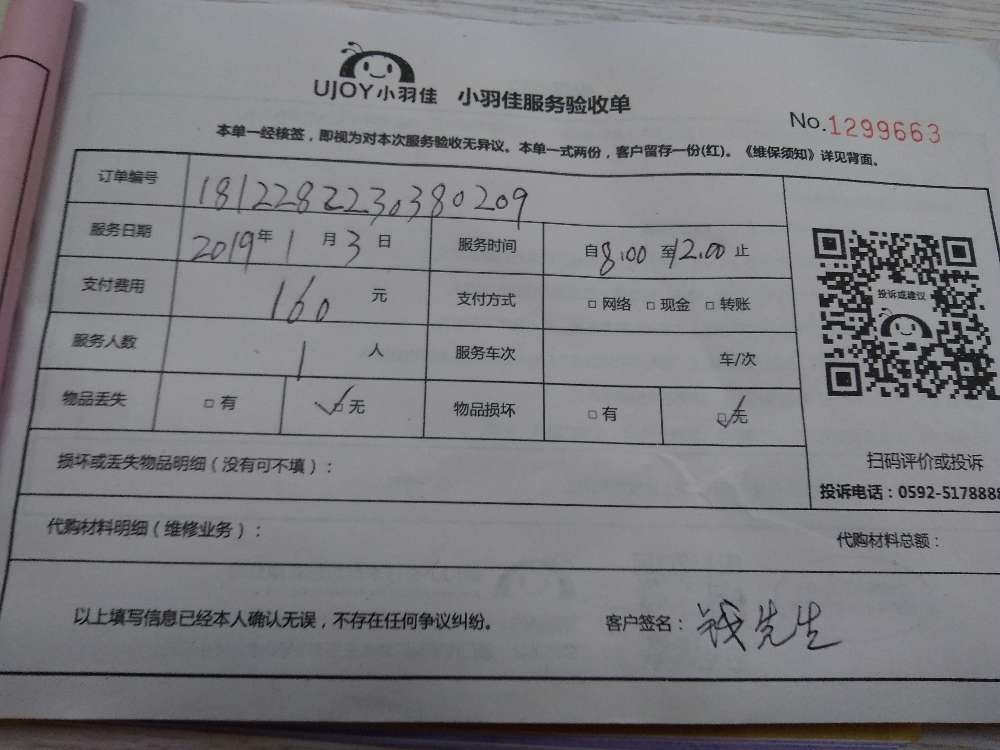 UJOY小羽佳 小羽佳服务验收单
No.1299663
本单一经核签，即视为对本次服务验收无异议。本单一式两份，客户留存一份(红)。《维保须知》详见背面。
订单编号 1812282230380209
服务日期 2019年1月3日 服务时间 自8:00至12.00止
支付费用 160元 支付方式 □网络 □现金 □转账
服务人数 1人 服务车次 车/次
物品丢失 □有 ✓□无 物品损坏 □有 ☑无
投诉或建议
扫码评价或投诉
投诉电话：0592-5178888
损坏或丢失物品明细（没有可不填）：
代购材料明细（维修业务）： 代购材料总额：
以上填写信息已经本人确认无误，不存在任何争议纠纷。 客户签名：钱先生